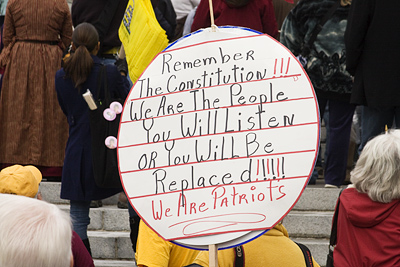 Remember
The Constitution!!!
We Are The People
You Will Listen
OR You Will Be
Replaced!!!!!
We Are Patriots